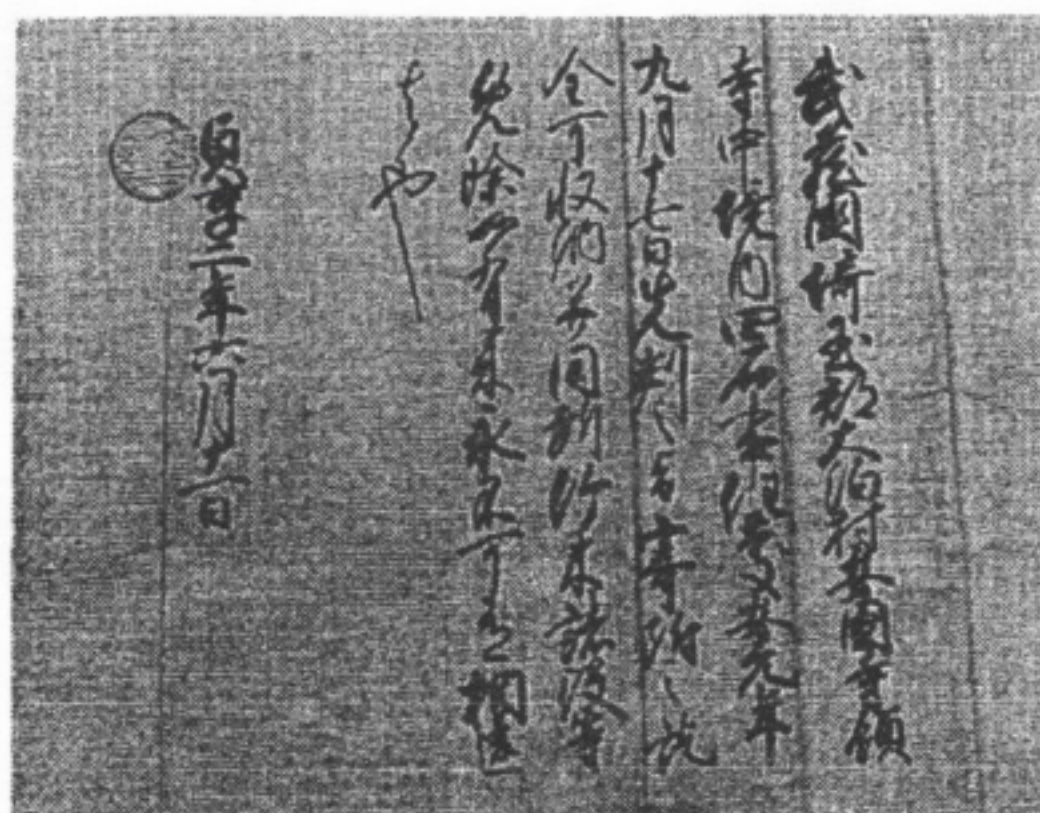 武蔵國埼玉郡大泊村安國寺領
寺中境内四石 任慶安元年
九月十七日先判之旨寄附之訖
全可収納并 竹木諸役等
免除如有来永不可有相違
者也
貞享二年六月十一日